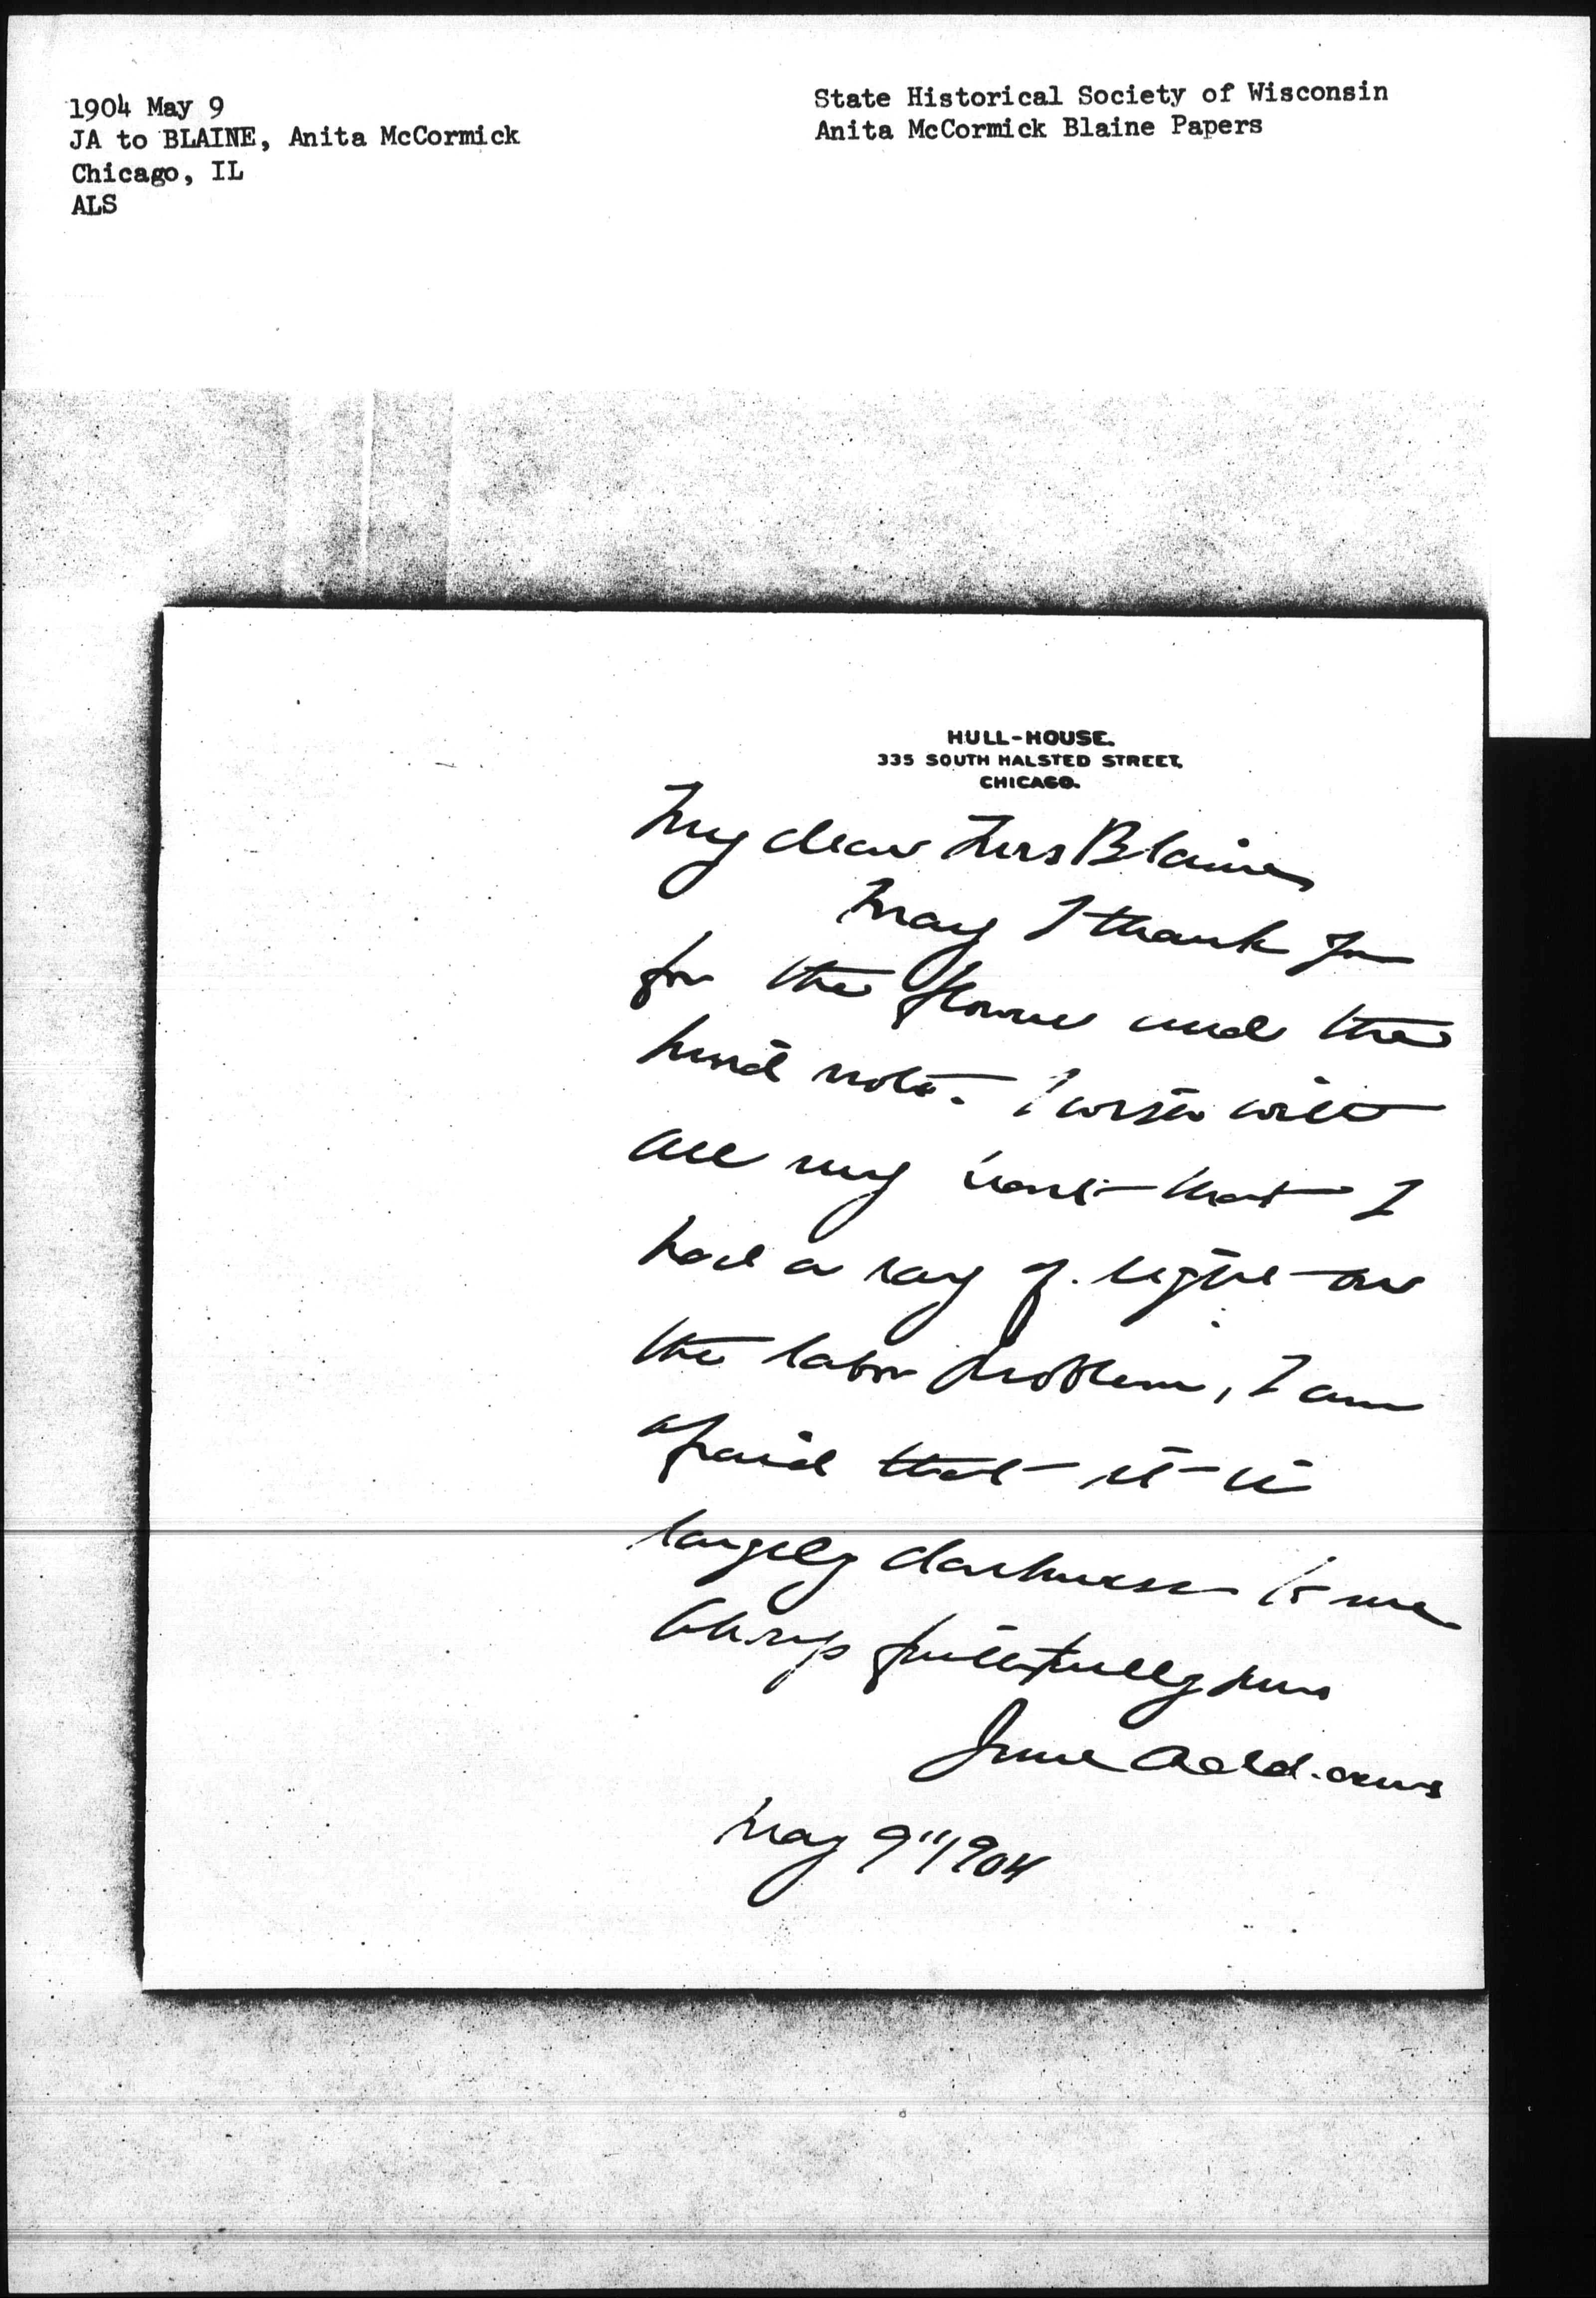 1904 May 9
JA to BLAINE, Anita McCormick
Chicago, IL
ALS
State Historical Society of Wisconsin
Anita McCormick Blaine Papers
HULL-HOUSE.
335 SOUTH HALSTED STREET,
CHICAGO.
My dear Mrs Blaine
May I thank you
for the flowers and the
kind note. I wish with
all my heart that I
had a ray of light on
the labor problem, I am
afraid that it is
largely darkness to me
Always faithfully yours
Jane Addams
May 9" 1904